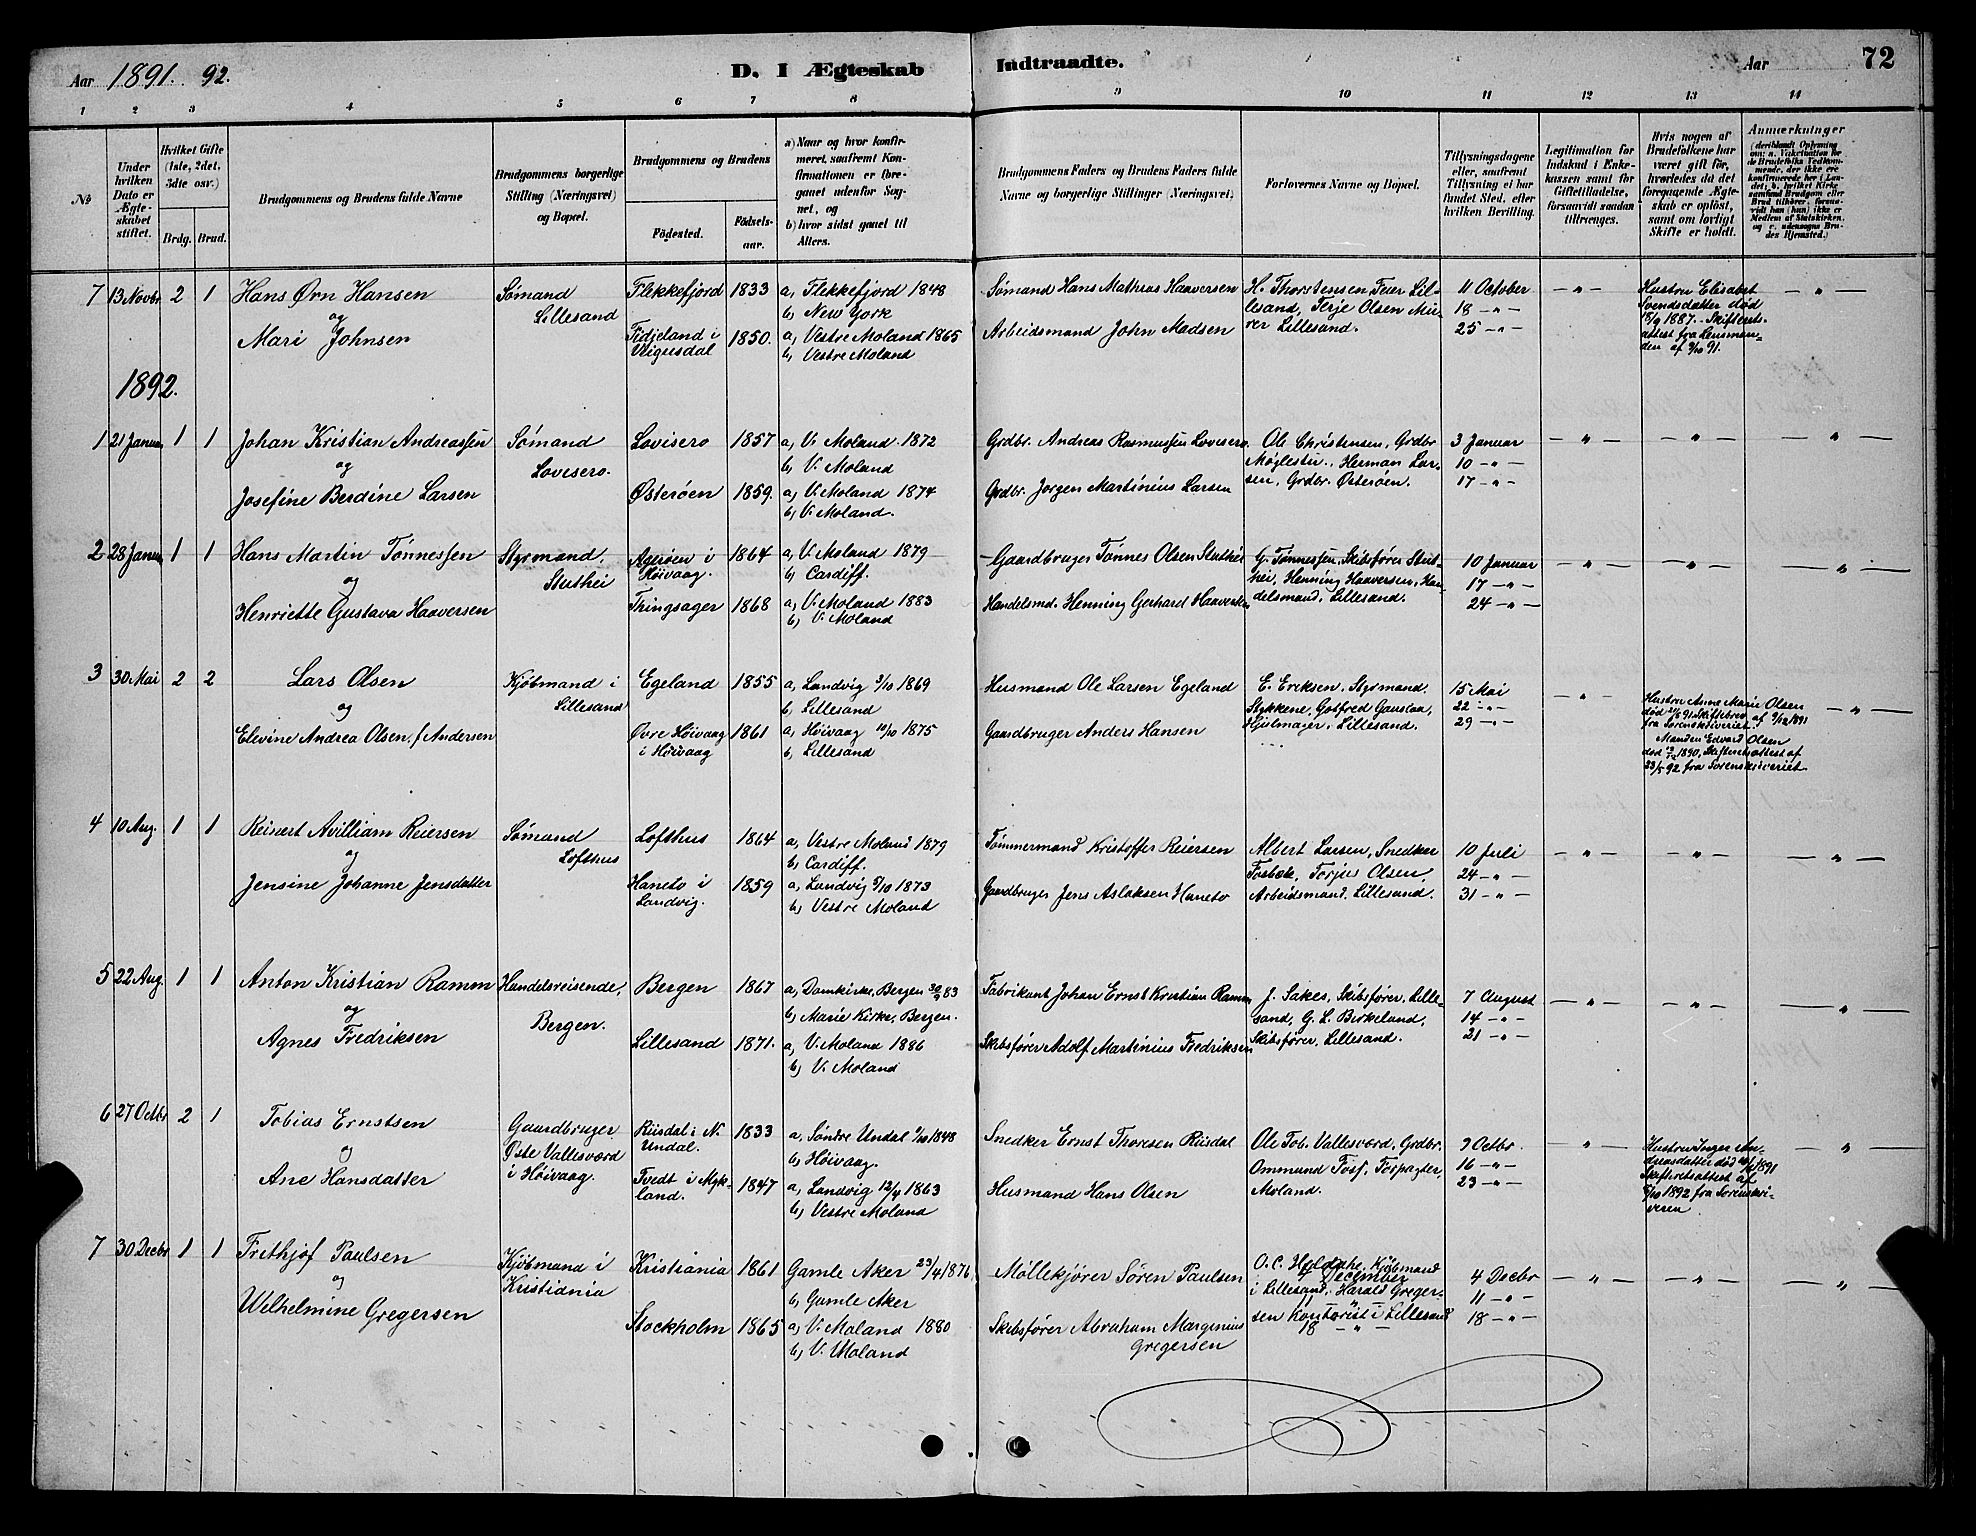 Aar 1891. 92.
D. I Ægteskab Indtraadte.
Aar 72
1 2 3 4 5 6 7 8 9 10 11 12 13 14
№
Under hvilken Dato er Ægteskabet stiftet.
Hvilket Gifte (1ste, 2det, 3die osv.)
Brdg. Brud.
Brudgommens og Brudens fulde Navne
Brudgommens borgerlige Stilling (Næringsvei) og Bopæl.
Brudgommens og Brudens
Födested.
Födselsaar.
a) Naar og hvor konfirmeret, saafremt Konfirmationen er foregaaet udenfor Sognet, og
b) hvor sidst gaaet til Alters.
Brudgommens Faders og Brudens Faders fulde Navne og borgerlige Stillinger (Næringsvei)
Forlovernes Navne og Bopæl.
Tillysningsdagene eller, saafremt Tillysning ei har fundet Sted, efter hvilken Bevilling.
Legitimation for Indskud i Enkekassen samt for Giftetilladelse, forsaavidt saadan tiltrænges.
Hvis nogen af Brudefolkene har været gift för, hvorledes da det foregaaende Ægteskab er oplöst, samt om lovligt Skifte er holdt.
Anmærkninger
7 13 Novbr. 2 1 Hans Ørn Hansen
og
Mari Johnsen
Sømand
Lillesand
Flekkefjord 1833
Fidjeland i
Vegusdal 1850.
a, Flekkefjord 1848
b, New York
a, Vestre Moland 1865
b, Vestre Moland
Sømand Hans Mathias Haaversen
Arbeidsmand John Madsen
H. Thorstensen, Foier Lil-
lesand, Terje Olsen Mu-
rer Lillesand.
11 October
18 - " -
25 - " -
- " -
Hustru Elisabet
Svendsdatter død
18/9 1887. Skifterets-
attest fra Lensman-
den af 9/10 91.
- " -
1892.
1 21 Januar 1 1 Johan Kristian Andreassen
og
Josefine Berdine Larsen
Sømand
Lovisero.
Lovisero 1857
Østerøen 1859.
a, V. Moland. 1872
b, V. Moland
a, V. Moland 1874
b, V. Moland.
Grdbr. Andreas Rasmussen Lovisero.
Grdbr. Jørgen Martinius Larsen
Ole Christensen, Grdbr
Møglestu., Herman Lar-
sen, Grdbr. Østerøen.
3 Januar
10 - " -
17 - " -
- " - - " - - " -
2 28 Januar 1 1 Hans Martin Tønnessen
og
Henriette Gustava Haaversen
Styrmand.
Stuthei
Agerøen i
Høivaag. 1864
Tingsager 1868
a, V. Moland 1879
b, Cardiff.
a, V. Moland 1883
b, V. Moland
Gaardbruger Tønnes Olsen Stuthei
Handelsmd. Henning Gerhard Haaversen
G. Tønnessen, Skibsfører Stut-
hei, Henning Haaversen, Han-
delsmand, Lillesand.
10 Januar
17 - " -
24 - " -
- " - - " - - " -
3 30 Mai 2 2 Lars Olsen
og
Elevine Andrea Olsen, f. Andersen
Kjøbmand i
Lillesand
Egeland 1855
Øvre Høivaag
i Høivaag 1861
a, Landvig 3/10 1869
b, Lillesand
a, Høivaag 10/10 1875
b, Lillesand
Husmand Ole Larsen Egeland
Gaardbruger Anders Hansen
E. Eriksen, Styrmand.
Stykkene, Gotfred Gauslaa,
Hjulmager, Lillesand.
15 Mai
22 - " -
29 - " -
- " -
Hustru Anne Marie Olsen
død 21/5 91. Skiftebrev af 9/12 1891
fra Sorenskriveriet
Manden Edvard Olsen
død 1890, Skifteretsattest af
23/5 92 fra Sorenskriveriet.
- " -
4 10 Aug. 1 1 Reinert Avilliam Reiersen
og
Jensine Johanne Jensdatter
Sømand
Lofthus
Lofthus 1864
Haneto i
Landvig. 1859
a, Vestre Moland 1879
b, Cardiff.
a, Landvig 5/10 1873
b, Vestre Moland
Tømmermand Kristoffer Reiersen
Gaardbruger Jens Aslaksen Haneto
Albert Larsen, Snedker
Fosbæk, Torjus Olsen,
Arbeidsmand, Lillesand.
10 Juli
24 - " -
31 - " -
- " - - " - - " -
5 22 Aug. 1 1 Anton Kristian Ramm
og
Agnes Fredriksen
Handelsreisende,
Bergen.
Bergen 1867
Lillesand 1871.
a, Domkirke, Bergen 30/9 83
b, Marie Kirke, Bergen.
a, V. Moland 1886
b, V. Moland
Fabrikant Johan Ernst Kristian Ramm
Skibsfører Adolf Martinius Fredriksen
J. Sakes, Skibsfører, Lille-
sand, G. L. Birkeland,
Skibsfører, Lillesand.
7 August
14 - " -
21 - " -
- " - - " - - " -
6 27 Octbr 2 1 Tobias Ernstsen
og
Ane Hansdatter
Gaardbruger
Øste Vallesværd
i Høivaag.
Risdal i N.
Undal. 1833
Tvedt i Myk-
land. 1847
a, Søndre Undal 1/10 1848
b, Høivaag.
a, Landvig 12/4 1863
b, Vestre Moland
Snedker Ernst Thoresen Risdal
Husmand Hans Olsen
Ole Tob. Vallesværd, Grdbr.
Ommund Tosf. Forpagter,
Moland.
9 Octbr.
16 - " -
23 - " -
- " -
Hustru Inger An-
dreasdatter død 1891
Skifteretsattest af
5/10 1892 fra Sorenskri-
veren
- " -
7 30 Decbr 1 1 Frithjof Paulsen
og
Wilhelmine Gregersen
Kjøbmand i
Kristiania
Kristiania 1861
Stockholm 1865
Gamle Aker 23/4 1876
b, Gamle Aker
a, V. Moland 1880
b, V. Moland
Møllekjører Søren Paulsen
Skibsfører Abraham Marginius
Gregersen
O. C. Holdahe, Kjøbmand
4 December
i Lillesand, Harald Greger-
11 "
sen Kontorist i Lillesand
18 - " -
4 Decbr
11 - " -
18 - " -
- " - - " - - " -